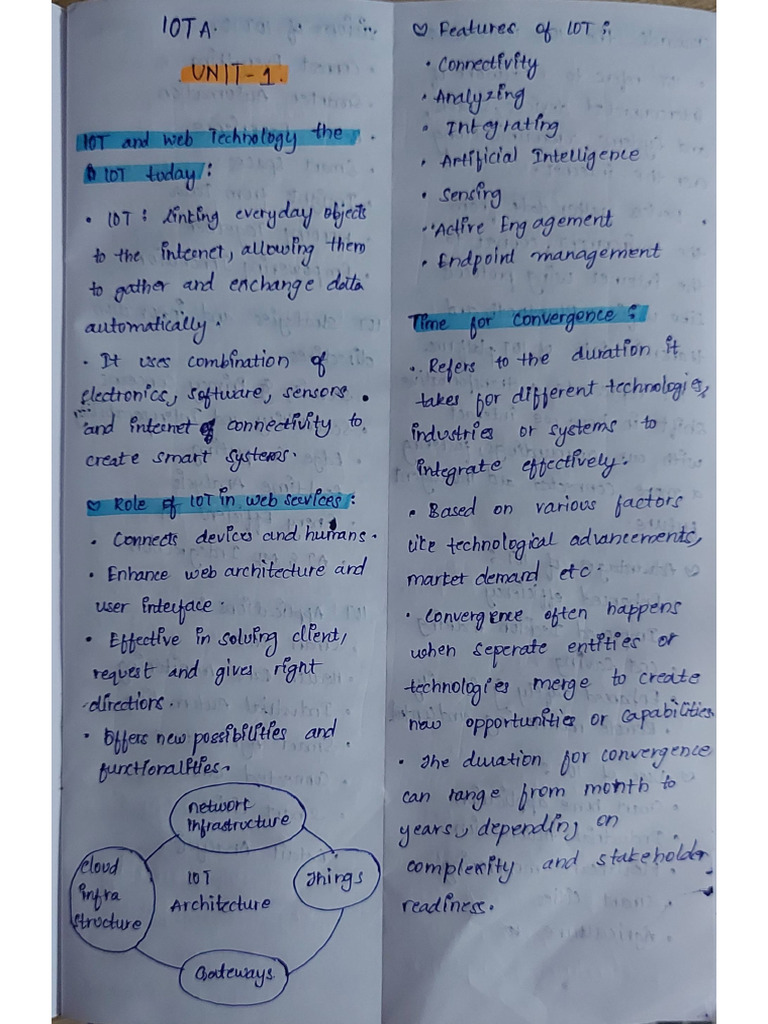 IOTA.
UNIT-1
IOT and web Technology the
IOT today:
• IOT: linking everyday objects
to the internet, allowing them
to gather and exchange data
automatically.
• It uses combination of
electronics, software, sensors
and internet of connectivity to
create smart systems.
♡ Role of IOT in web services:
• Connects devices and humans.
• Enhance web architecture and
user interface.
• Effective in solving client,
request and gives right
directions.
• Offers new possibilities and
functionalities.
network
infrastructure
Cloud
infra
structure
IOT
Architecture
Things
Gateways
♡ Features of IOT:
• Connectivity
• Analyzing
• Integrating
• Artificial Intelligence
• Sensing
• Active Engagement
• Endpoint management
Time for Convergence:
• Refers to the duration it
takes for different technologies,
industries or systems to
integrate effectively.
• Based on various factors
like technological advancements,
market demand etc.
• Convergence often happens
when seperate entities or
technologies merge to create
new opportunities or capabilities
• The duration for convergence
can range from month to
years, depending on
complexity and stakeholder
readiness.